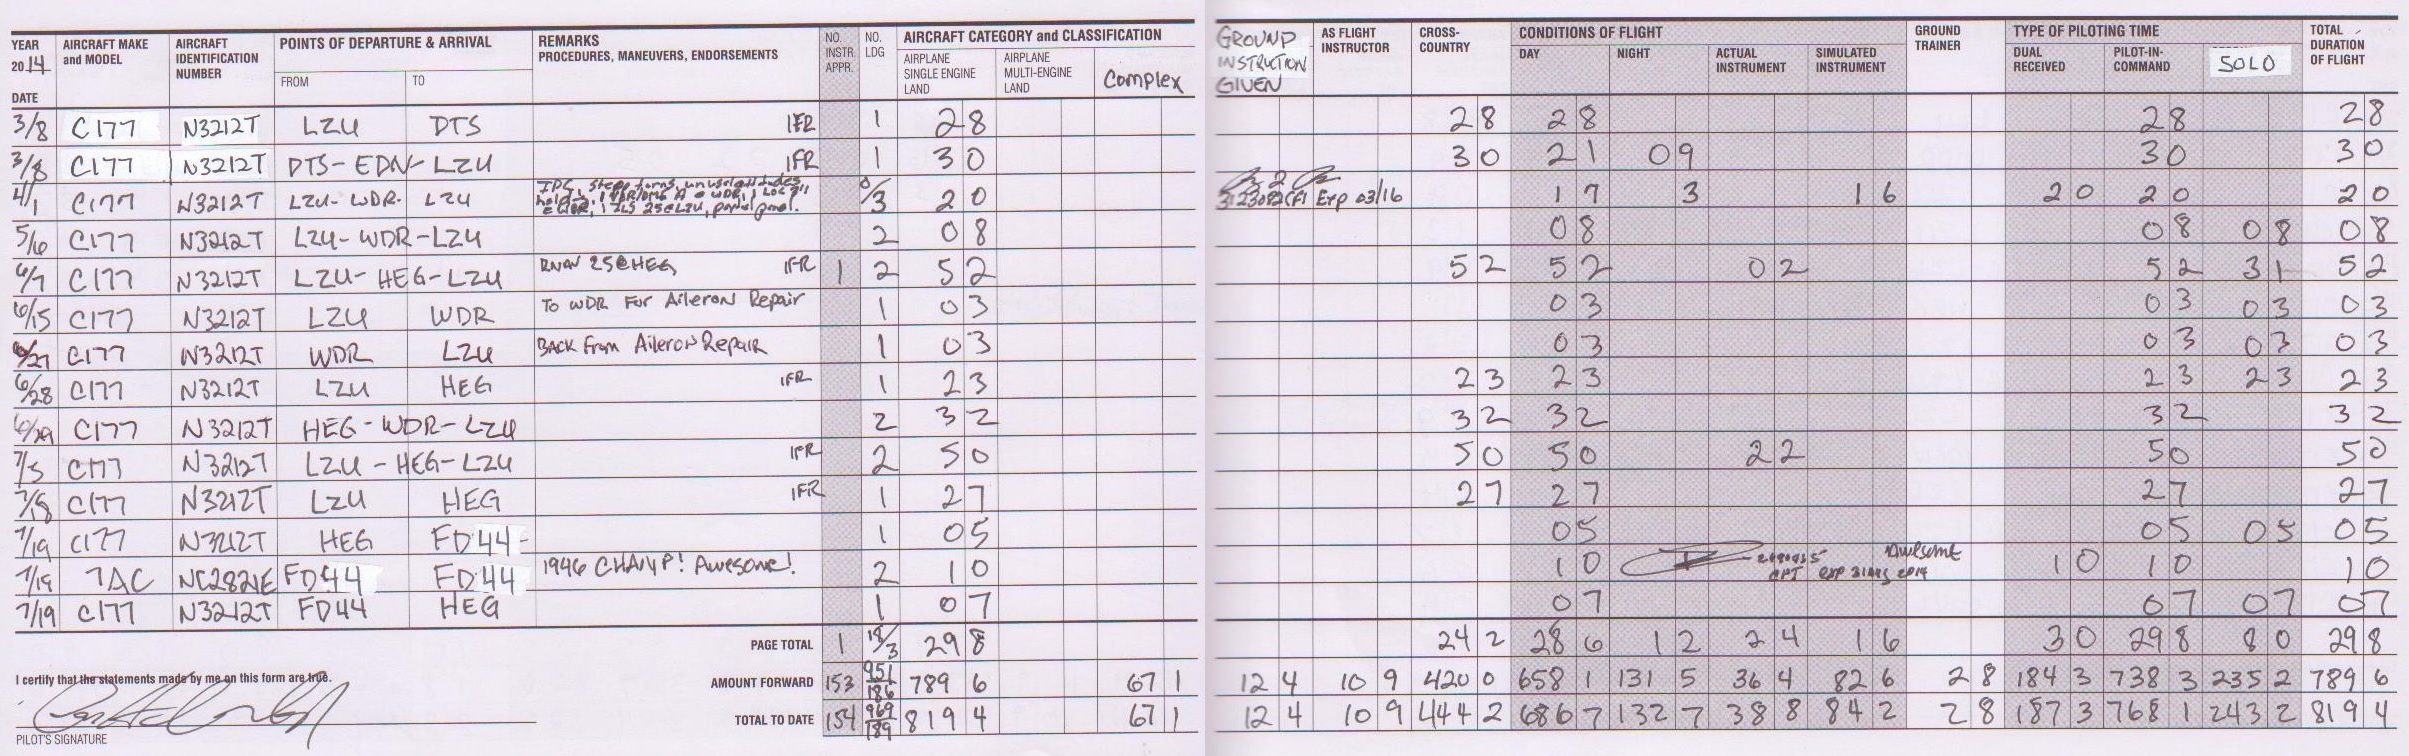 YEAR 2014 AIRCRAFT MAKE and MODEL AIRCRAFT IDENTIFICATION NUMBER POINTS OF DEPARTURE & ARRIVAL REMARKS PROCEDURES, MANEUVERS, ENDORSEMENTS NO. INSTR. APPR. NO. LDG AIRCRAFT CATEGORY and CLASSIFICATION GROUND INSTRUCTION GIVEN AS FLIGHT INSTRUCTOR CROSS-COUNTRY CONDITIONS OF FLIGHT GROUND TRAINER TYPE OF PILOTING TIME TOTAL DURATION OF FLIGHT
DATE FROM TO AIRPLANE SINGLE ENGINE LAND AIRPLANE MULTI-ENGINE LAND Complex DAY NIGHT ACTUAL INSTRUMENT SIMULATED INSTRUMENT DUAL RECEIVED PILOT-IN-COMMAND SOLO
3/8 C177 N3212T LZU DTS IFR 1 2 8 2 8 2 8 2 8 2 8
3/8 C177 N3212T DTS-EDN-LZU IFR 1 3 0 3 0 2 1 0 9 3 0 3 0
4/1 C177 N3212T LZU-WDR- LZU IPC, steep turns, unusual attitudes, holding, 1 VOR/DME A @ WDR, 1 LOC 1 ILS 25 @ LZU, partial panel. 0/3 2 0 CFI Exp 03/16 1 7 3 1 6 2 0 2 0 2 0
5/6 C177 N3212T LZU-WDR-LZU 2 0 8 0 8 0 8 0 8 0 8
6/7 C177 N3212T LZU-HEG-LZU RNAV 25@HEG IFR 1 2 5 2 5 2 5 2 0 2 5 2 3 1 5 2
6/15 C177 N3212T LZU WDR To WDR For Aileron Repair 1 0 3 0 3 0 3 0 3 0 3
6/27 C177 N3212T WDR LZU BACK From Aileron Repair 1 0 3 0 3 0 3 0 3 0 3
6/28 C177 N3212T LZU HEG IFR 1 2 3 2 3 2 3 2 3 2 3 2 3
6/29 C177 N3212T HEG-WDR-LZU 2 3 2 3 2 3 2 3 2 3 2
7/5 C177 N3212T LZU-HEG-LZU IFR 2 5 0 5 0 5 0 2 2 5 0 5 0
7/18 C177 N3212T LZU HEG IFR 1 2 7 2 7 2 7 2 7 2 7
7/19 C177 N3212T HEG FD44 1 0 5 0 5 0 5 0 5 0 5
7/19 7AC NC2821E FD44 FD44 1946 CHAMP! Awesome! 2 1 0 1 0 Awesome exp 31 Aug 2014 1 0 1 0 1 0
7/19 C177 N3212T FD44 HEG 1 0 7 0 7 0 7 0 7 0 7
PAGE TOTAL 1 18/3 29 8 24 2 28 6 1 2 2 4 1 6 3 0 29 8 8 0 29 8
I certify that the statements made by me on this form are true. AMOUNT FORWARD 153 951/186 789 6 67 1 12 4 10 9 420 0 658 1 131 5 36 4 82 6 2 8 184 3 738 3 235 2 789 6
TOTAL TO DATE 154 969/189 819 4 67 1 12 4 10 9 444 2 686 7 132 7 38 8 84 2 2 8 187 3 768 1 243 2 819 4
PILOT'S SIGNATURE